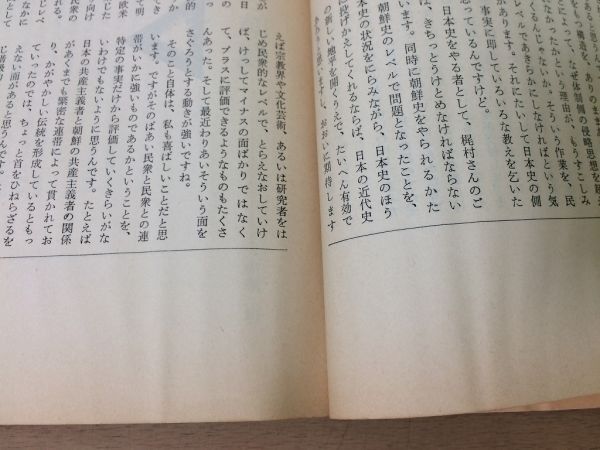 もつ構造を、ありのまま
によって、なぜ体制側の侵略思想を超え
なかったかという理由が、もうすこしみ
くるんじゃないか。そういう作業を、民
レベルであきらかにしなければという気
があります。それにたいして日本史の側
事実に即していろいろな教えを乞いた
思っているんですけど。
日本史をやる者として、梶村さんのご
は、きちっとうけとめなければならない
います。同時に朝鮮史をやられるかた
朝鮮史のレベルで問題となったことを、
本史の状況をにらみながら、日本史のほう
投げかえしてくれるならば、日本の近代史
の新しい地平を開くうえで、たいへん有効で
おおいに期待します
えば宗教界や文化芸術、あるいは研究者をは
じめ民衆的なレベルで、とらえなおしていけ
ば、けっしてマイナスの面ばかりではなく
て、プラスに評価できるようなものもたくさ
んあった。そして最近わりあいそういう面を
さぐろうとする動きが強いですね。
そのこと自体は、私も喜ばしいことだと思
います。ですがそのばあい民衆と民衆との連
帯がいかに強いものであるかということを、
特定の事実だけから評価していくきらいがな
いわけでもないように思うんです。たとえば
日本の共産主義者と朝鮮の共産主義者の関係
があくまでも緊密な連帯によって貫かれてお
り、かがやかしい伝統を形成しているともっ
ていったのでは、ちょっと首をひねらざるを
えない面があると思うんです。